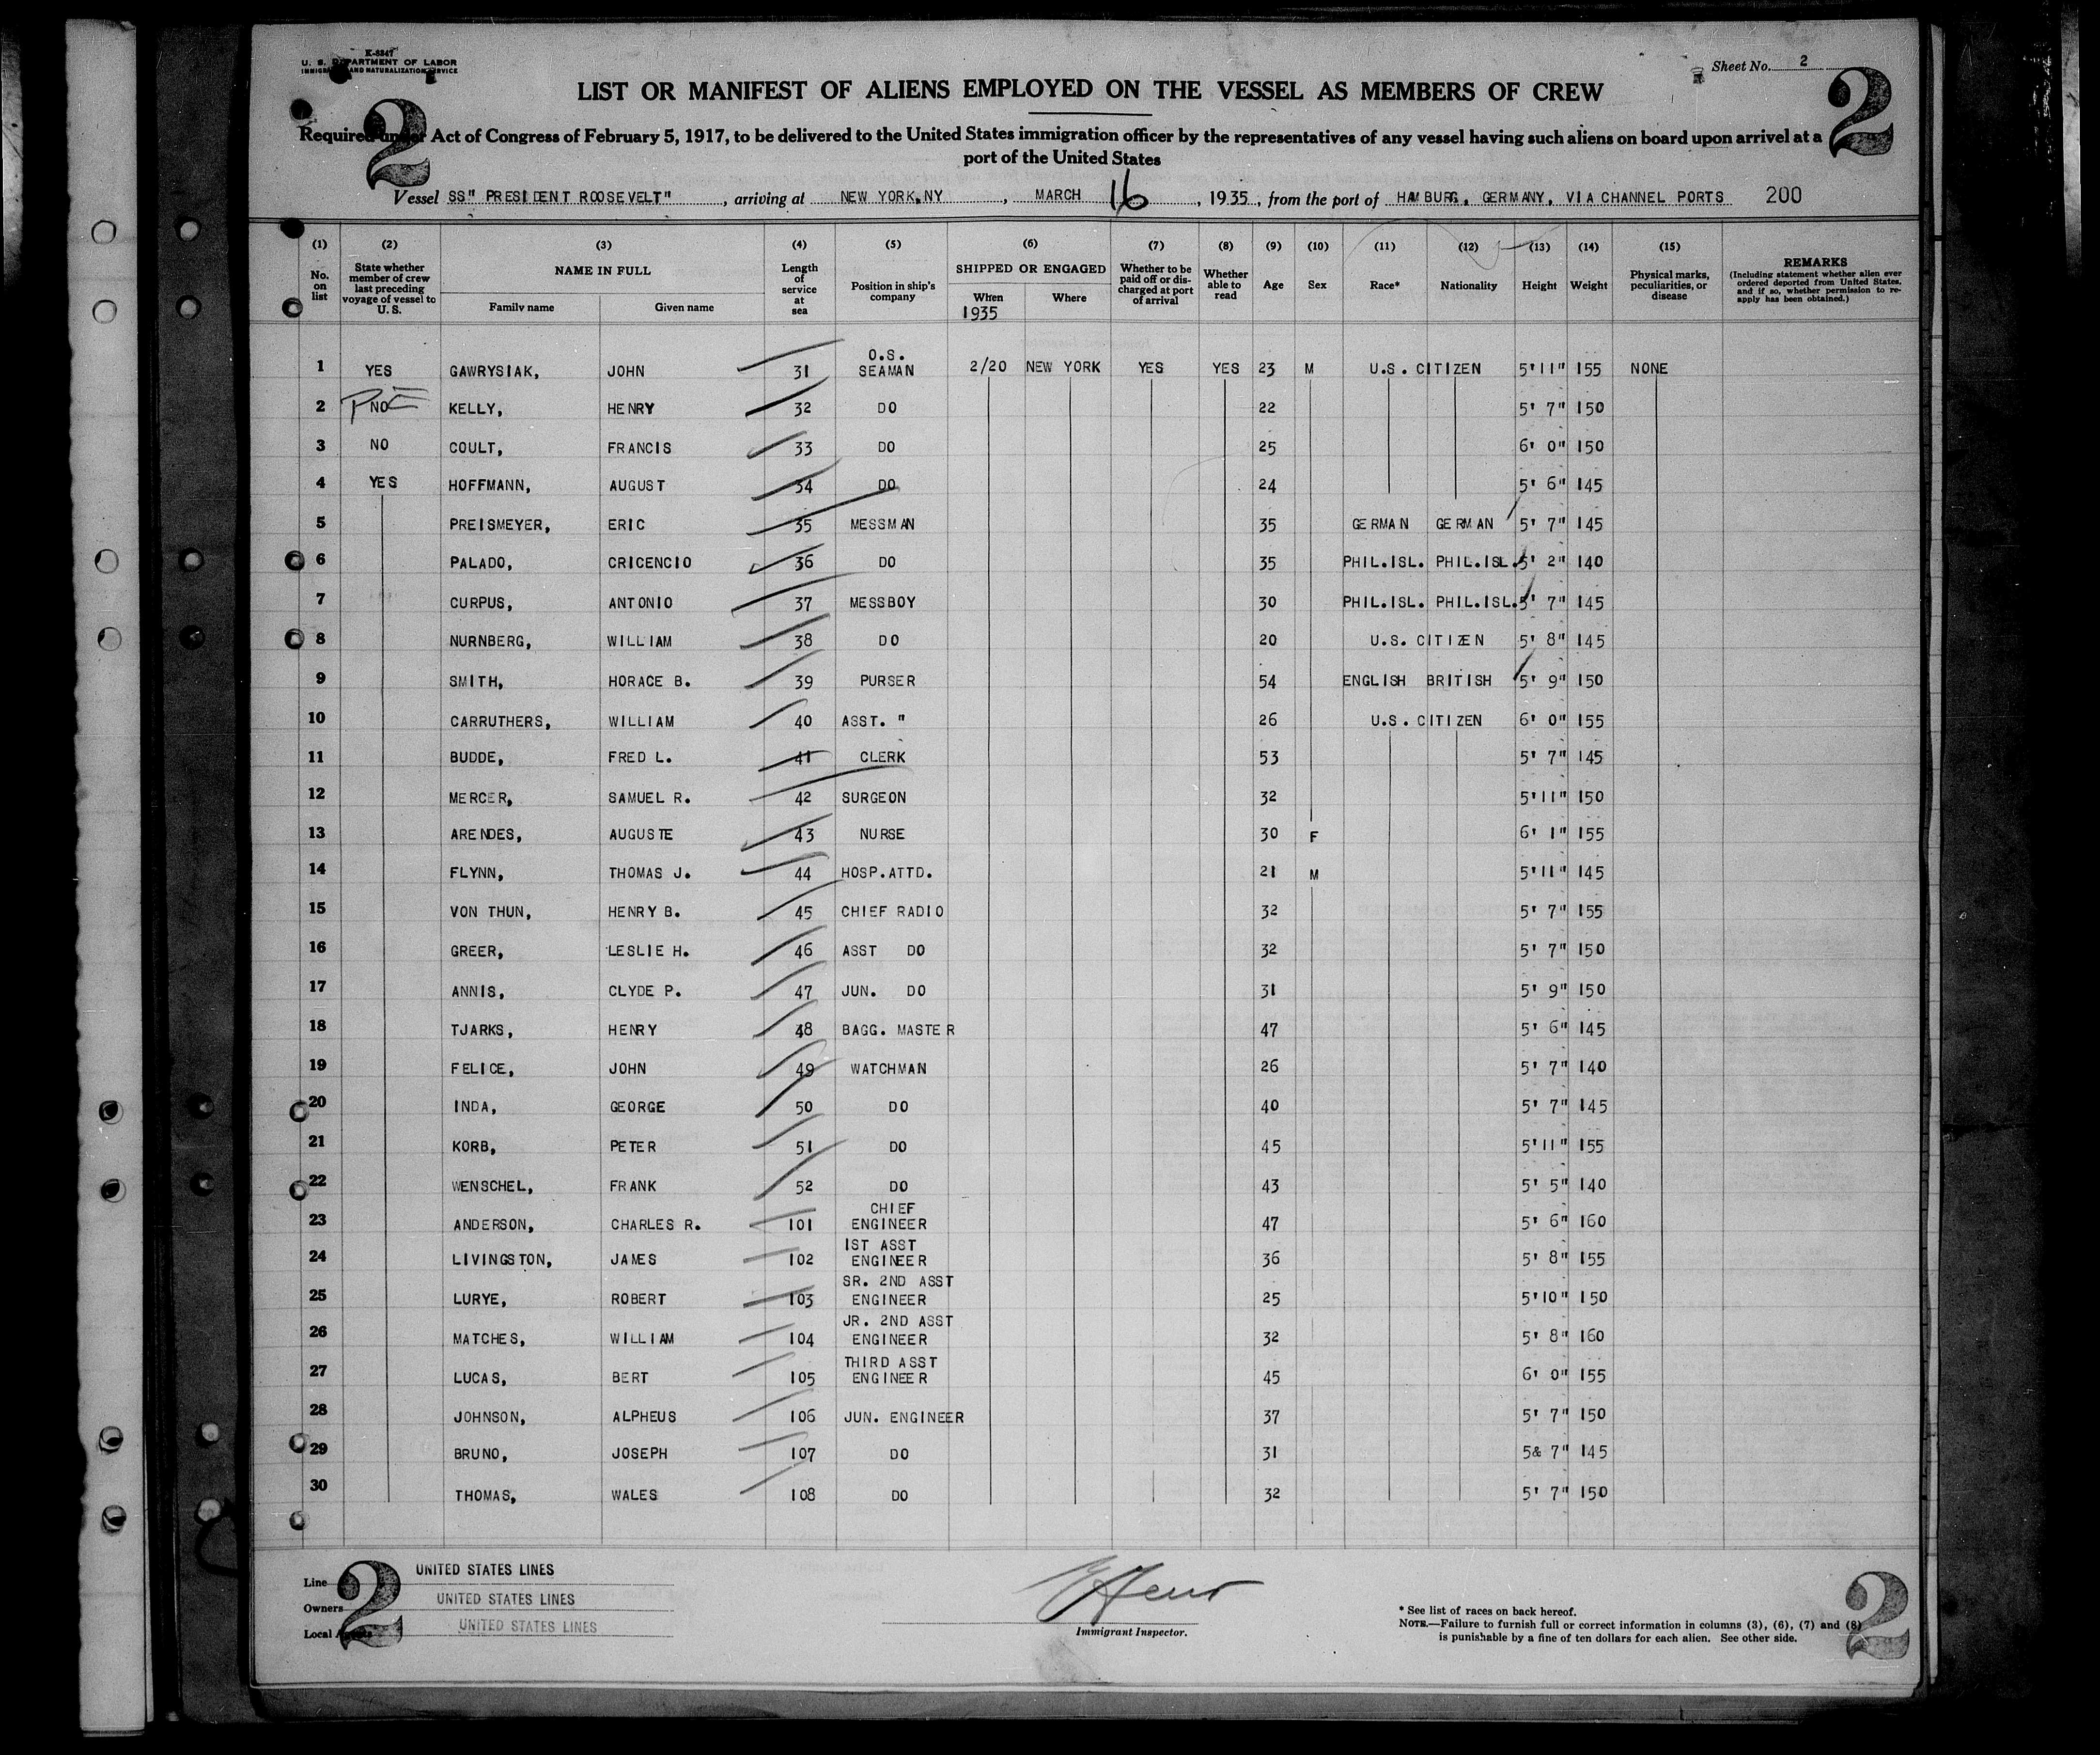 K-8847
U. S. DEPARTMENT OF LABOR
IMMIGRATION AND NATURALIZATION SERVICE
Sheet No. 2
2 2
LIST OR MANIFEST OF ALIENS EMPLOYED ON THE VESSEL AS MEMBERS OF CREW
Required under Act of Congress of February 5, 1917, to be delivered to the United States immigration officer by the representatives of any vessel having such aliens on board upon arrival at a
port of the United States
Vessel SS" PRESIDENT ROOSEVELT", arriving at NEW YORK,NY, MARCH 16, 1935, from the port of HAMBURG, GERMANY, VIA CHANNEL PORTS 200
(1) (2) (3) (4) (5) (6) (7) (8) (9) (10) (11) (12) (13) (14) (15)
No. on list | State whether member of crew last preceding voyage of vessel to U. S. | NAME IN FULL Family name Given name | Length of service at sea | Position in ship's company | SHIPPED OR ENGAGED When 1935 Where | Whether to be paid off or discharged at port of arrival | Whether able to read | Age | Sex | Race* | Nationality | Height | Weight | Physical marks, peculiarities, or disease | REMARKS (Including statement whether alien ever ordered deported from United States, and if so, whether permission to re-apply has been obtained.)
1 YES GAWRYSIAK, JOHN 31 O.S. SEAMAN 2/20 NEW YORK YES YES 23 M U.S. CITIZEN 5'11" 155 NONE
2 NO KELLY, HENRY 32 DO 22 5' 7" 150
3 NO COULT, FRANCIS 33 DO 25 6' 0" 150
4 YES HOFFMANN, AUGUST 34 DO 24 5' 6" 145
5 PREISMEYER, ERIC 35 MESSMAN 35 GERMAN GERMAN 5' 7" 145
6 PALADO, CRICENCIO 36 DO 35 PHIL.ISL. PHIL.ISL. 5' 2" 140
7 CURPUS, ANTONIO 37 MESSBOY 30 PHIL.ISL. PHIL.ISL. 5' 7" 145
8 NURNBERG, WILLIAM 38 DO 20 U.S. CITIZEN 5' 8" 145
9 SMITH, HORACE B. 39 PURSER 54 ENGLISH BRITISH 5' 9" 150
10 CARRUTHERS, WILLIAM 40 ASST. " 26 U.S. CITIZEN 6' 0" 155
11 BUDDE, FRED L. 41 CLERK 53 5' 7" 145
12 MERCER, SAMUEL R. 42 SURGEON 32 5'11" 150
13 ARENDES, AUGUSTE 43 NURSE 30 F 6' 1" 155
14 FLYNN, THOMAS J. 44 HOSP.ATTD. 21 M 5'11" 145
15 VON THUN, HENRY B. 45 CHIEF RADIO 32 5' 7" 155
16 GREER, LESLIE H. 46 ASST DO 32 5' 7" 150
17 ANNIS, CLYDE P. 47 JUN. DO 31 5' 9" 150
18 TJARKS, HENRY 48 BAGG. MASTER 47 5' 6" 145
19 FELICE, JOHN 49 WATCHMAN 26 5' 7" 140
20 INDA, GEORGE 50 DO 40 5' 7" 145
21 KORB, PETER 51 DO 45 5'11" 155
22 WENSCHEL, FRANK 52 DO 43 5' 5" 140
23 ANDERSON, CHARLES R. 101 CHIEF ENGINEER 47 5' 6" 160
24 LIVINGSTON, JAMES 102 1ST ASST ENGINEER 36 5' 8" 155
25 LURYE, ROBERT 103 SR. 2ND ASST ENGINEER 25 5'10" 150
26 MATCHES, WILLIAM 104 JR. 2ND ASST ENGINEER 32 5' 8" 160
27 LUCAS, BERT 105 THIRD ASST ENGINEER 45 6' 0" 155
28 JOHNSON, ALPHEUS 106 JUN. ENGINEER 37 5' 7" 150
29 BRUNO, JOSEPH 107 DO 31 5& 7" 145
30 THOMAS, WALES 108 DO 32 5' 7" 150
2 2
Line UNITED STATES LINES
Owners UNITED STATES LINES
Local Agents UNITED STATES LINES
Immigrant Inspector.
* See list of races on back hereof.
NOTE.—Failure to furnish full or correct information in columns (3), (6), (7) and (8)
is punishable by a fine of ten dollars for each alien. See other side.